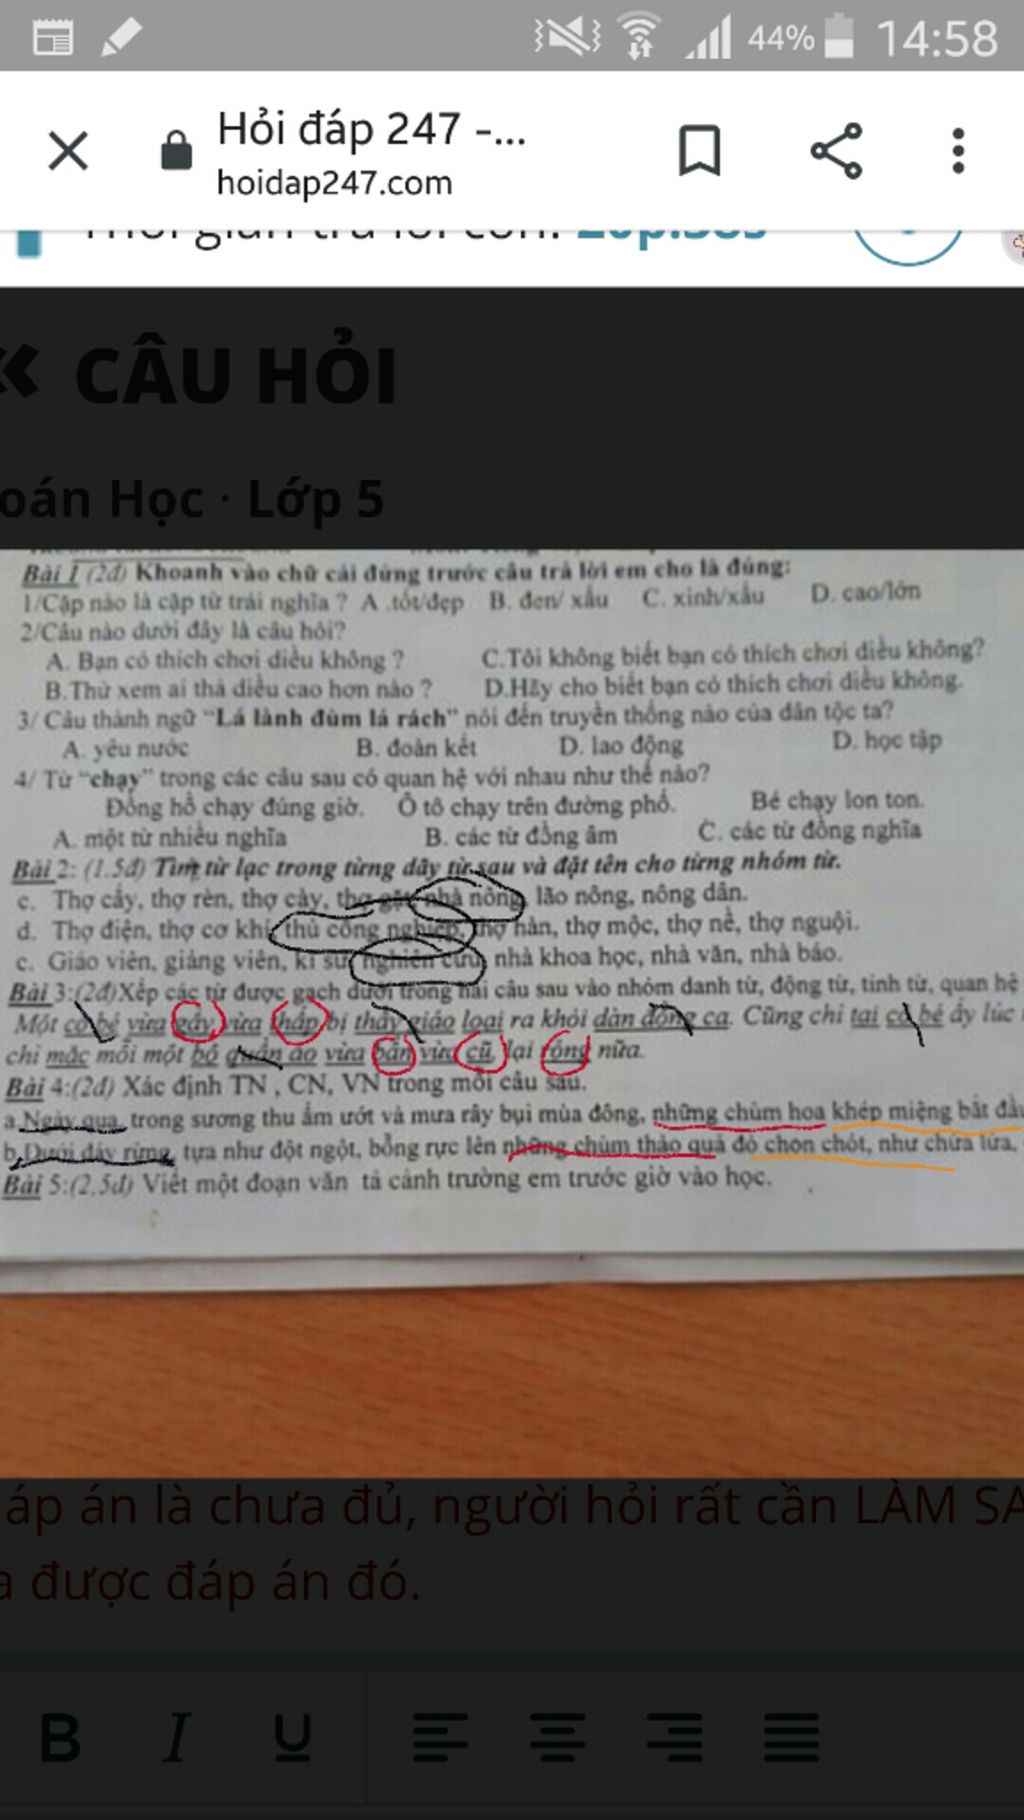 44% 14:58
Hỏi đáp 247 -...
hoidap247.com
CÂU HỎI
oán Học · Lớp 5
Bài 1 (2đ) Khoanh vào chữ cái đứng trước câu trả lời em cho là đúng:
1/Cặp nào là cặp từ trái nghĩa ? A .tốt/đẹp B. đen/ xấu C. xinh/xấu D. cao/lớn
2/Câu nào dưới đây là câu hỏi?
A. Bạn có thích chơi diều không ? C.Tôi không biết bạn có thích chơi diều không?
B.Thử xem ai thả diều cao hơn nào ? D.Hãy cho biết bạn có thích chơi diều không.
3/ Câu thành ngữ “Lá lành đùm lá rách” nói đến truyền thống nào của dân tộc ta?
A. yêu nước B. đoàn kết D. lao động D. học tập
4/ Từ “chạy” trong các câu sau có quan hệ với nhau như thế nào?
Đồng hồ chạy đúng giờ. Ô tô chạy trên đường phố. Bé chạy lon ton.
A. một từ nhiều nghĩa B. các từ đồng âm C. các từ đồng nghĩa
Bài 2: (1.5đ) Tìm từ lạc trong từng dãy từ sau và đặt tên cho từng nhóm từ.
c. Thợ cấy, thợ rèn, thợ cày, thợ gặt, nhà nông, lão nông, nông dân.
d. Thợ điện, thợ cơ khí, thủ công nghiệp, thợ hàn, thợ mộc, thợ nề, thợ nguội.
c. Giáo viên, giảng viên, kĩ sư, nghiên cứu, nhà khoa học, nhà văn, nhà báo.
Bài 3:(2đ)Xếp các từ được gạch dưới trong hai câu sau vào nhóm danh từ, động từ, tính từ, quan hệ
Một cô bé vừa gầy vừa thấp bị thầy giáo loại ra khỏi dàn đồng ca. Cũng chỉ tại cô bé ấy lúc
chỉ mặc mỗi một bộ quần áo vừa bẩn vừa cũ lại rộng nữa.
Bài 4:(2đ) Xác định TN , CN, VN trong mỗi câu sau.
a.Ngày qua, trong sương thu ẩm ướt và mưa rây bụi mùa đông, những chùm hoa khép miệng bắt đầu
b.Dưới đáy rừng, tựa như đột ngột, bỗng rực lên những chùm thảo quả đỏ chon chót, như chứa lửa,
Bài 5:(2,5đ) Viết một đoạn văn tả cảnh trường em trước giờ vào học.
áp án là chưa đủ, người hỏi rất cần LÀM SA
được đáp án đó.
B I U